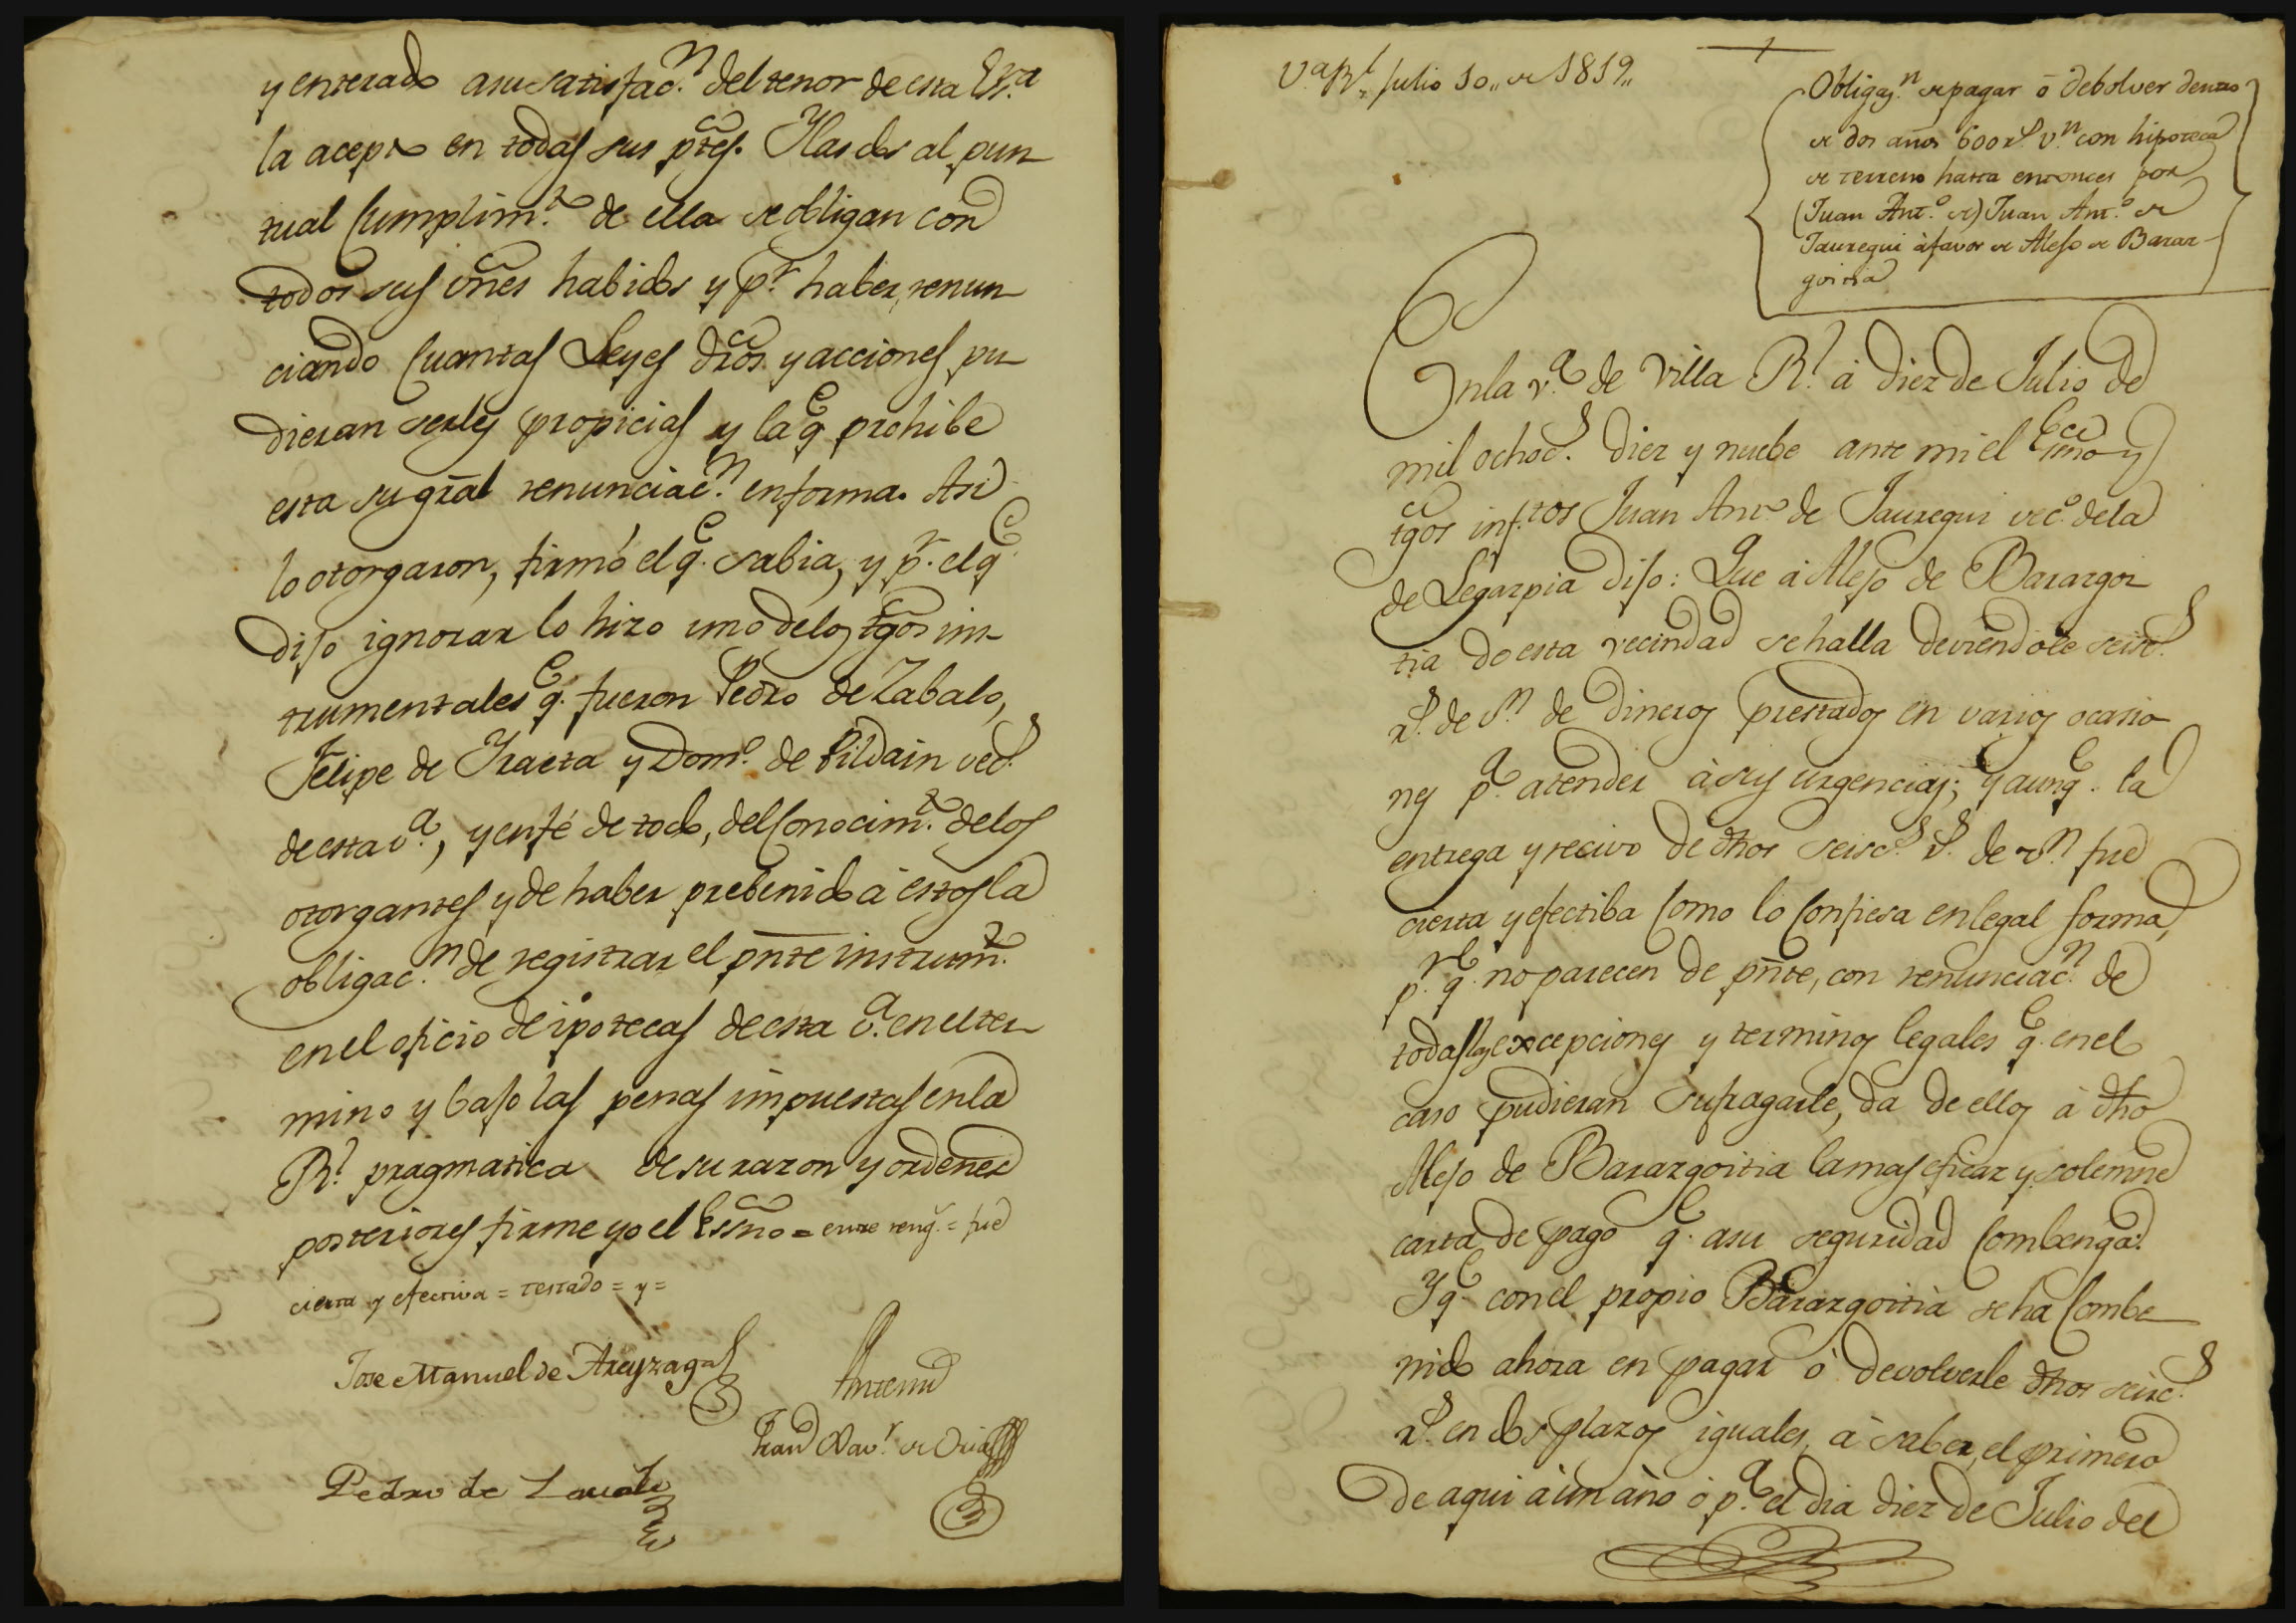 y enterado a su satisfac.n del tenor de esta Es.ra
la acepto en todas sus ptes. Y las dos al pun
tual Cumplim.to de ella se obligan con
todos sus vnes habidos y p.r haber, renun
ciando Cuantas Leyes dros y acciones pu
dieran serles propicias y la q.e prohibe
esta su gral renunciac.n en forma. Asi
lo otorgaron, firmó el q.e sabia, y p.r el q.e
dijo ignorar lo hizo uno de los tgos ins
trumentales q.e fueron Pedro de Zabalo,
Felipe de Yraeta y Dom.o de Pildain vec.s
de esta v.a, y en fé de todo, del Conocim.to de los
otorgantes y de haber prebenido à estos la
obligac.n de registrar el pnte instrum.to
en el oficio de ipotecas de esta v.a en el ter
mino y bajo las penas impuestas en la
R.l pragmatica de su razon y ordenes
posteriores firme yo el Essno = entre reng.s = fue
cierta y efectiva = testado = y =
Jose Manuel de Areyzaga
Antemi
Fran.co Xav.r de Oria
Pedro de Zavalo
V.a R.l Julio 10,, de 1819,,
Obligaz.n de pagar ò debolver dentro
de dos años 600 r.s v.n con hipoteca
de terreno hasta entonces por
(Juan Ant.o de) Juan Ant.o de
Jauregui à favor de Alejo de Barar-
goitia
En la v.a de Villa R.l à diez de Julio de
mil ochoc.s diez y nuebe ante mi el Essno y
tgos inf.tos Juan Ant.o de Jauregui vec.o de la
de Legazpia dijo: Que à Alejo de Barargoi
tia de esta vecindad se halla deviendole seisc.s
r.s de v.n de dineros prestados en varios ocasio
nes p.a atender à sus urgencias; y aunq.e la
entrega y recivo de dhos seisc.s r.s de v.n fue
cierta y efectiba Como lo Confiesa en legal forma,
p.r q.e no parecen de pnte, con renunciac.n de
todas las excepciones y terminos legales q.e en el
caso pudieran sufragarle, da de ellos à dho
Alejo de Barargoitia la mas eficaz y solemne
carta de pago q.e a su seguridad Combenga:
Y q.e con el propio Barargoitia se ha Combe
nido ahora en pagar ò devolverle dhos seisc.s
r.s en dos plazos iguales, à saber, el primero
de aqui à un año ó p.a el dia diez de Julio del